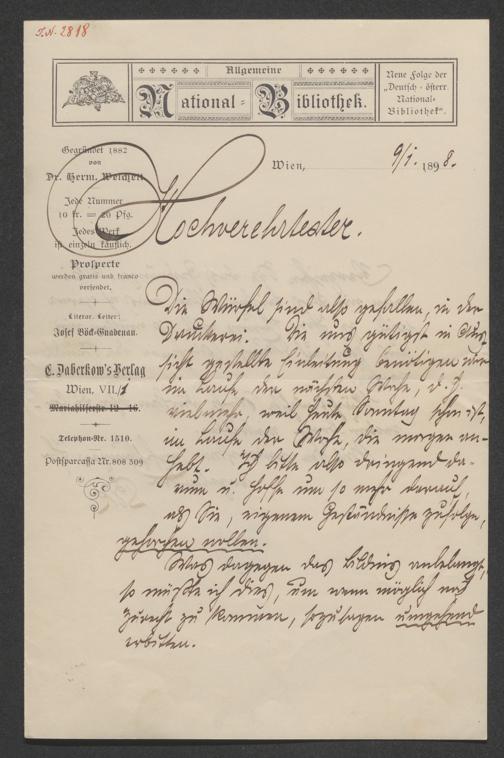 I.N. 2818
Allgemeine
National-Bibliothek.
Neue Folge der
„Deutsch-österr.
National-
Bibliothek“.
Gegründet 1882
von
Dr. Herm. Weichelt
Jede Nummer
10 kr. = 20 Pfg.
Jedes Werk
ist einzeln käuflich.
Prospecte
werden gratis und franco
versendet.
Literar. Leiter:
Josef Böck-Gnadenau.
C. Daberkow's Verlag
Wien, VII./1
Mariahilferstr. 12-16.
Telephon-Nr. 1510.
Postsparcassa Nr. 808 309
Wien, 9/I. 1898.
Hochverehrtester.
Die Würfel sind also gefallen, in der
Druckerei. Die uns gütigst in Aus-
sicht gestellte Einleitung benötigen wir
im Laufe der nächsten Woche, d. h.
vielmehr, weil heute Sonntag schon ist,
im Laufe der Woche, die morgen an-
hebt. Ich bitte also dringend da-
rum u. hoffe um so mehr darauf,
als Sie, eigenem Geständnisse zufolge,
gehorchen wollen.
Was dagegen das Bildnis anbelangt,
so müßte ich dies, um wenn möglich noch
zurecht zu kommen, sozusagen umgehend
erbitten.